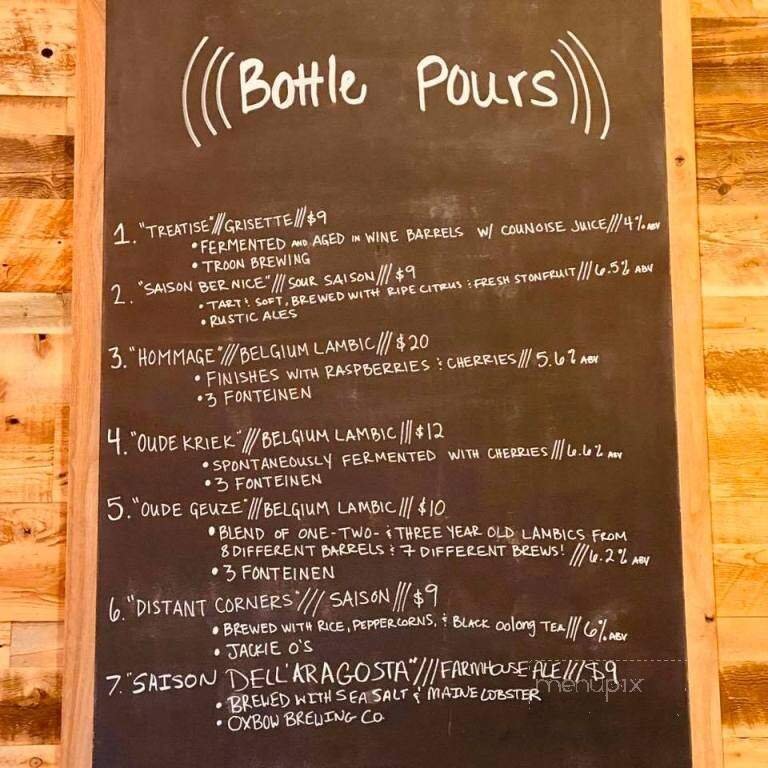 (((Bottle Pours)))
1. "TREATISE"///GRISETTE///$9
• FERMENTED AND AGED IN WINE BARRELS W/ COUNOISE JUICE///4% ABV
• TROON BREWING
2. "SAISON BERNICE"///SOUR SAISON///$9
• TART & SOFT, BREWED WITH RIPE CITRUS & FRESH STONFRUIT///6.5% ABV
• RUSTIC ALES
3. "HOMMAGE"///BELGIUM LAMBIC///$20
• FINISHES WITH RASPBERRIES & CHERRIES///5.6% ABV
• 3 FONTEINEN
4. "OUDE KRIEK"///BELGIUM LAMBIC///$12
• SPONTANEOUSLY FERMENTED WITH CHERRIES///6.6% ABV
• 3 FONTEINEN
5. "OUDE GEUZE"///BELGIUM LAMBIC///$10
• BLEND OF ONE-TWO- & THREE YEAR OLD LAMBICS FROM
8 DIFFERENT BARRELS & 7 DIFFERENT BREWS! ///6.2% ABV
• 3 FONTEINEN
6. "DISTANT CORNERS"///SAISON///$9
• BREWED WITH RICE, PEPPERCORNS, & BLACK OOLONG TEA///6% ABV
• JACKIE O'S
7. "SAISON DELL'ARAGOSTA"///FARMHOUSE ALE///$9
• BREWED WITH SEA SALT & MAINE LOBSTER
• OXBOW BREWING CO.
menupix